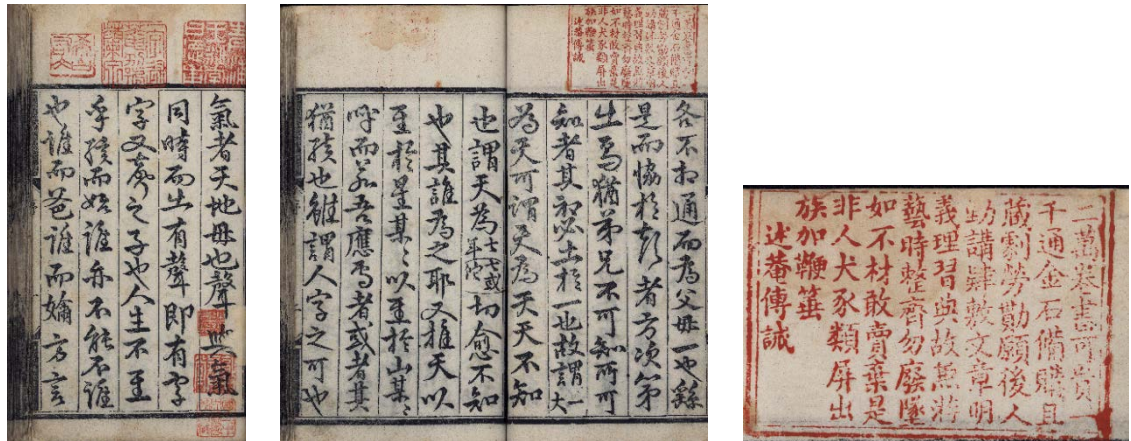 氣者天地毋也聲與氣
同時而出有聲即有字
字又聲之子也人生不至
乎孩而始誰亦不能不誰
也誰而爸誰而嬭方言
各不相通而為父毋一也繇
是而恊於者方次第
出焉猶弟兄不可知而可
知者其初必出於一也故謂一大
為天可謂天為天天不知
也謂天為七七或年穴切愈不知
也其誰為之耶又推天以
至於星某〻以至於山某〻
呼而若吾應焉者或者其
猶孩也雖謂人字之可也
二萬卷書可貴一
千通金石備購且
藏劇勞勩願後人
勤講肄敷文章明
義理習典故兼游
藝時整齊勿廢墜
如不材敢賣棄是
非人犬豕類屏出
族加鞭箠
述菴傳誡